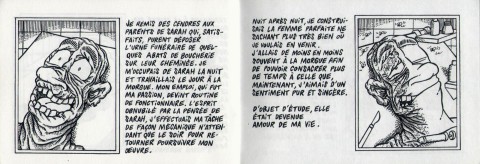 JE REMIS DES CENDRES AUX
PARENTS DE SARAH QUI, SATIS-
FAITS, PURENT DÉPOSER
L'URNE FUNÉRAIRE DE QUEL-
QUES ABATS DE BOUCHERIE
SUR LEUR CHEMINÉE. JE
M'OCCUPAIS DE SARAH LA NUIT
ET TRAVAILLAIS LE JOUR À LA
MORGUE. MON EMPLOI, QUI FUT
MA PASSION, DEVINT ROUTINE
DE FONCTIONNAIRE. L'ESPRIT
OBNUBILÉ PAR LA PENSÉE DE
SARAH, J'EFFECTUAIS MA TÂCHE
DE FAÇON MÉCANIQUE N'ATTEN-
DANT QUE LE SOIR POUR RE-
TOURNER POURSUIVRE MON
ŒUVRE.
NUIT APRÈS NUIT, JE CONSTRUI-
SAIS LA FEMME PARFAITE NE
SACHANT PLUS TRÈS BIEN OÙ
JE VOULAIS EN VENIR.
J'ALLAIS DE MOINS EN MOINS
SOUVENT À LA MORGUE AFIN
DE POUVOIR CONSACRER PLUS
DE TEMPS À CELLE QUE,
MAINTENANT, J'AIMAIS D'UN
SENTIMENT PUR ET SINCÈRE.
D'OBJET D'ÉTUDE, ELLE
ÉTAIT DEVENUE
AMOUR DE MA VIE.